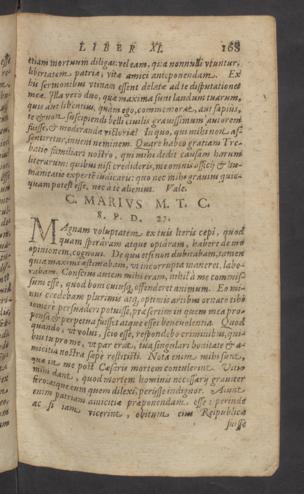 LIBER XI. 168
etiam mortuum diligas: vel eam, qua nonnulli vtuntur,
libertatem patriæ, vitæ amici anteponendam. Ex
his sermonibus vtinam essent delatæ ad te disputationes
meæ. Illa vero duo, quæ maxima sunt laudum tuarum,
quis aut libentius, quàm ego, commemorat, aut sæpius,
te & non suscipiendi belli ciuilis grauissimum autorem
fuisse, & moderandæ victoriæ? In quo, qui mihi non as-
sentiretur, inueni neminem. Quare habeo gratiam Tre-
batio familiari nostro, qui mihi dedit causam harum
literarum: quibus nisi credideris, me omnis officij & hu-
manitatis expertē iudicaris: quo nec mihi grauius quic-
quam potest esse, nec à te alienius. Vale.
C. MARIVS M. T. C.
S. P. D. 27.
MAgnam voluptatem ex tuis literis cepi, quod
quam speraram atque optaram, habere de me
opinionem, cognoui. De qua etsi non dubitabam, tamen
quia maximi æstimabam, vt incorrupta maneret, labo-
rabam. Conscius autem mihi eram, nihil à me commis-
sum esse, quod boni cuiusq; offenderet animum. Eo mi-
nus credebam plurimis atq; optimis artibus ornato tibi
temere persuaderi potuisse, præsertim in quem mea pro-
pensa & perpetua fuisset atque esset beneuolentia. Quod
quando, vt volui, scio esse, respondebo criminibus, qui-
bus tu pro me, vt par erat, tua singulari bonitate & a-
micitia nostra sæpe restitisti. Nota enim mihi sunt,
quæ in me post Cæsaris mortem contulerint. Vitio
mihi dant, quod mortem hominis necessarij grauiter
fero, atque eum quem dilexi, perisse indignor. Aiunt
enim patriam amicitiæ præponendam esse: perinde
ac si iam vicerint, obitum eius Reipublicæ
fuisse